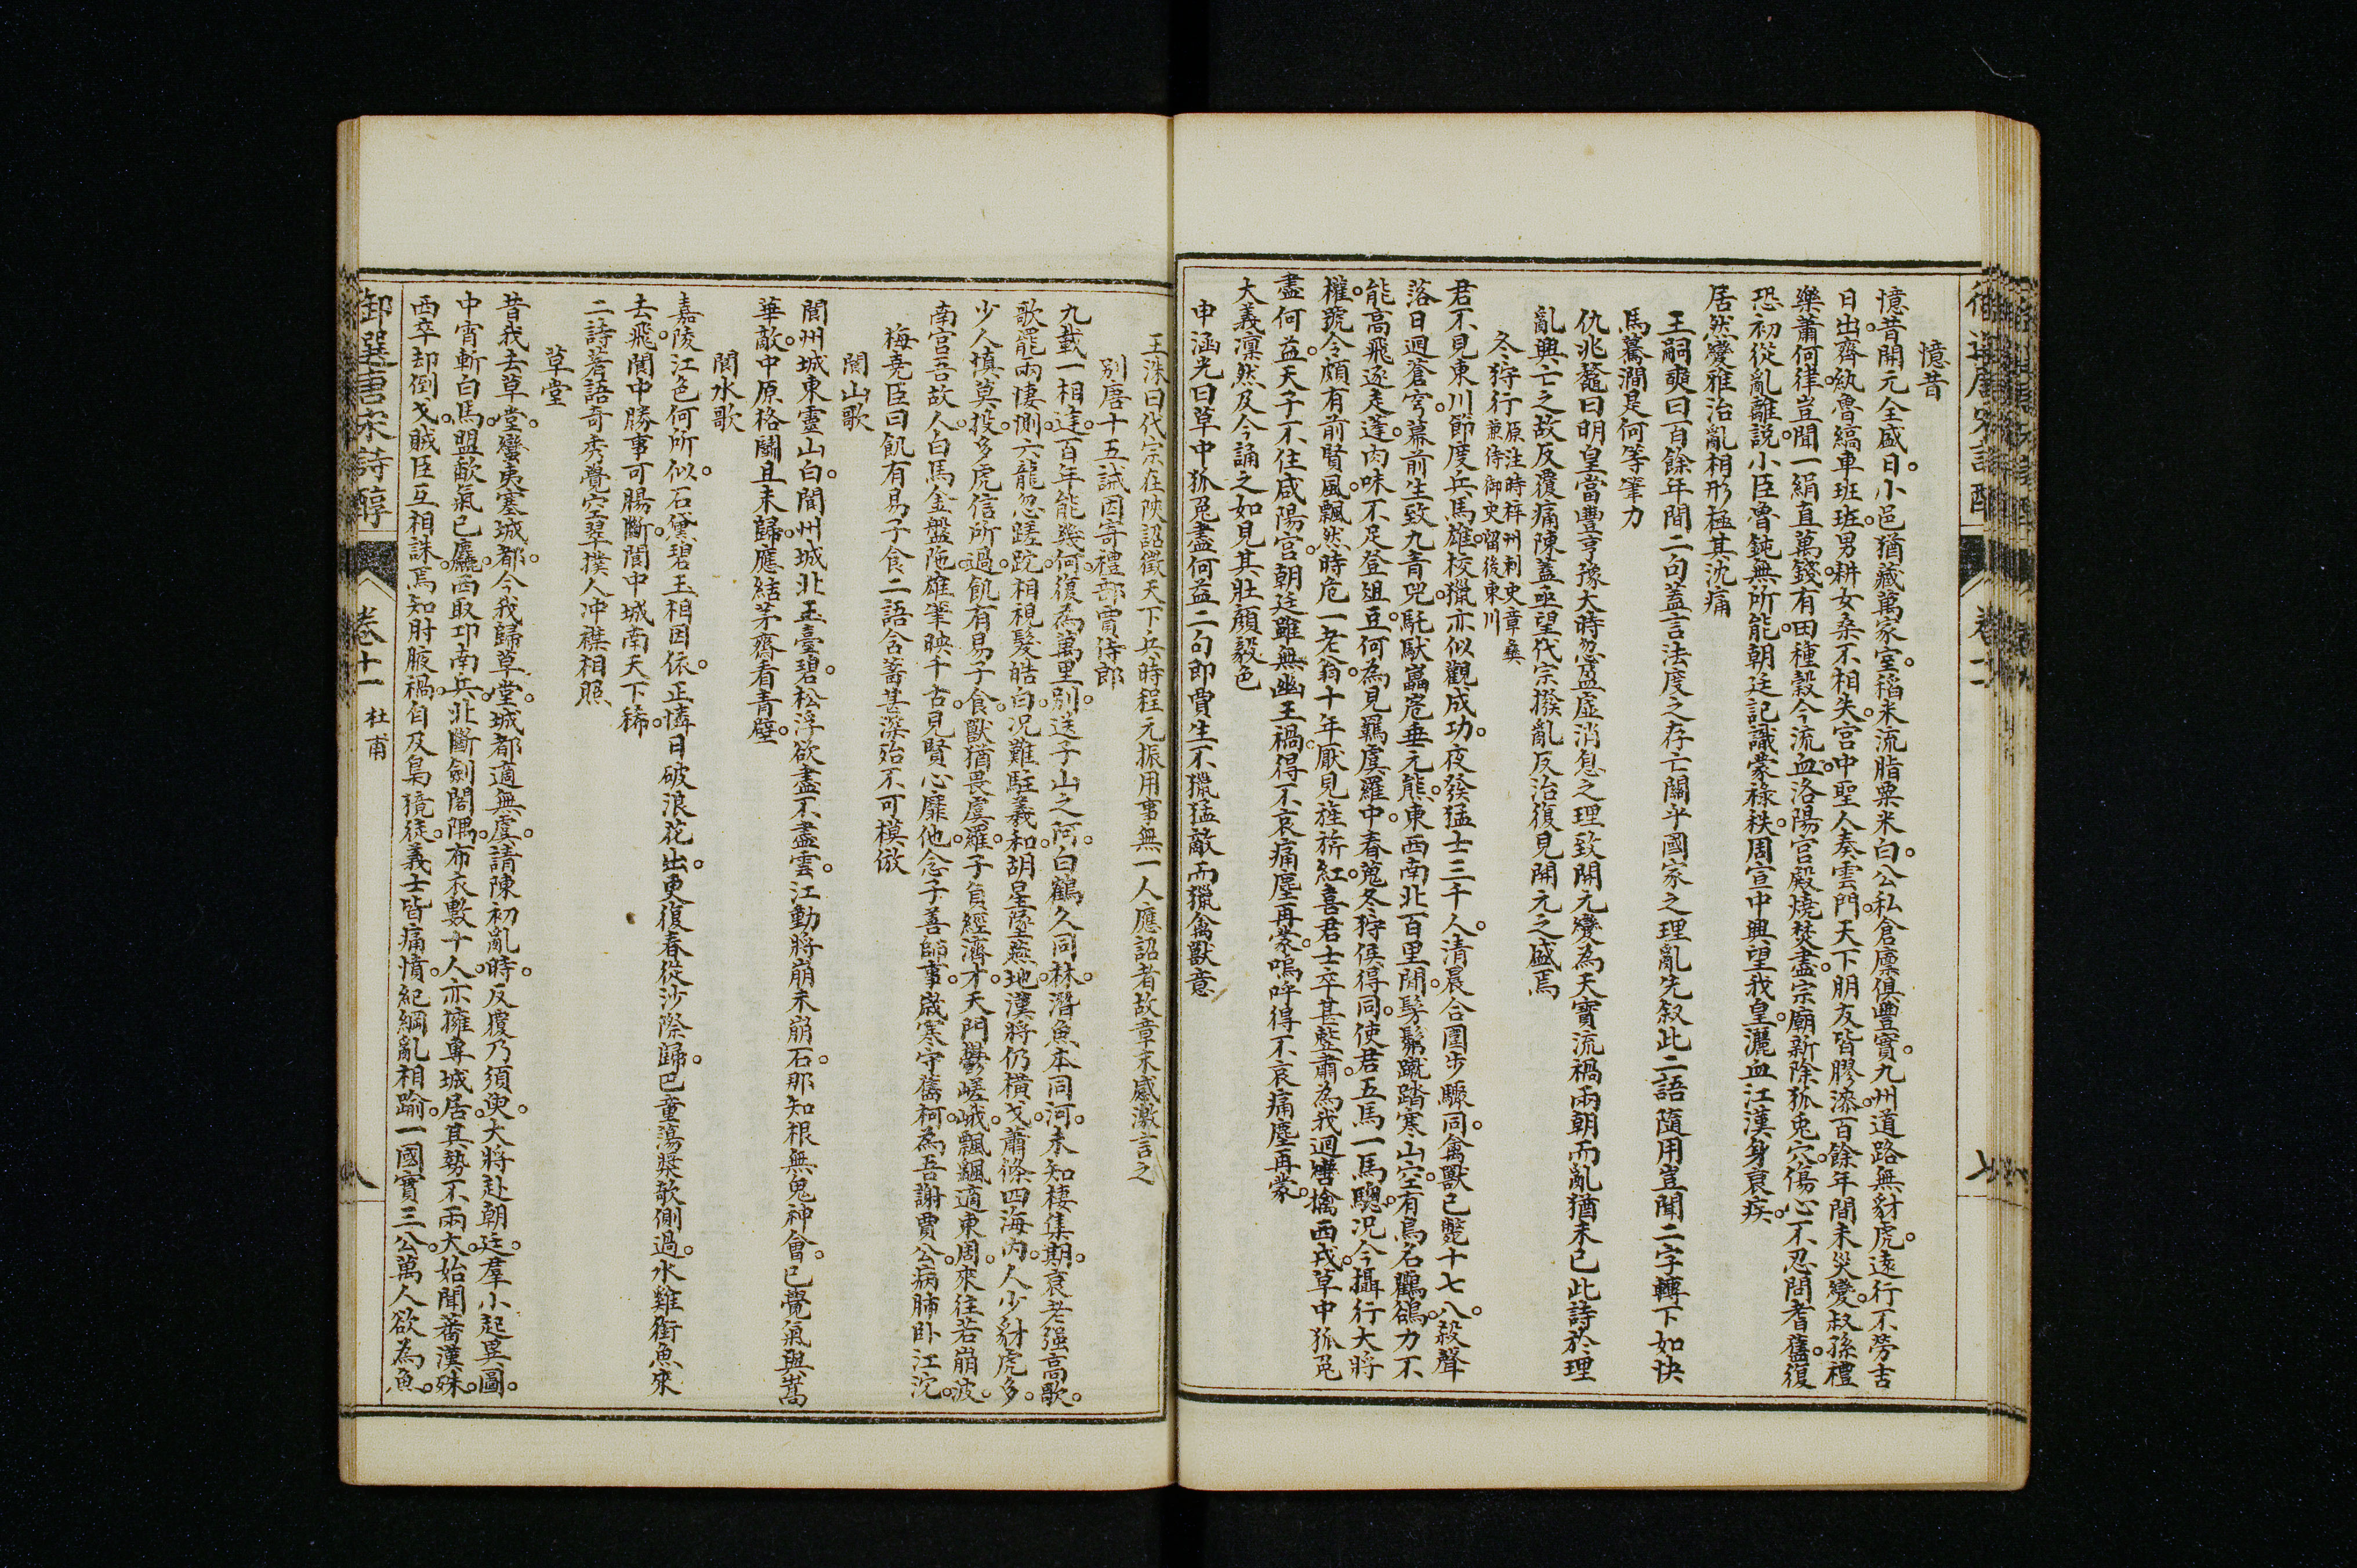 憶昔
憶昔開元全盛日。小邑猶藏萬家室。稻米流脂粟米白。公私倉廩俱豐實。九州道路無豺虎。遠行不勞吉
日出。齊紈魯縞車班班。男耕女桑不相失。宮中聖人奏雲門。天下朋友皆膠漆。百餘年間未災變。叔孫禮
樂蕭何律。豈聞一絹直萬錢。有田種穀今流血。洛陽宮殿燒焚盡。宗廟新除狐兔穴。傷心不忍問耆舊。復
恐初從亂離說。小臣魯鈍無所能。朝廷記識蒙祿秩。周宣中興望我皇。灑血江漢身衰疾。
居然變雅治亂相形極其沈痛
王嗣奭曰百餘年間二句蓋言法度之存亡關乎國家之理亂先叙此二語隨用豈聞二字轉下如快
馬驀澗是何等筆力
仇兆鰲曰明皇當豐亨豫大時忽盈虛消息之理致開元變為天寶流禍兩朝而亂猶未已此詩於理
亂興亡之故反覆痛陳蓋亟望代宗撥亂反治復見開元之盛焉
冬狩行 原注時梓州刺史章彝
兼侍御史留後東川
君不見東川節度兵馬雄。校獵亦似觀成功。夜發猛士三千人。清晨合圍步驟同。禽獸已斃十七八。殺聲
落日迴蒼穹。幕前生致九青兕。馲駞㠥峞垂元熊。東西南北百里間。髣髴蹴踏寒山空。有鳥名鸜鵒。力不
能高飛逐走蓬。肉味不足登俎豆。何為見羈虞羅中。春蒐冬狩侯得同。使君五馬一馬驄。況今攝行大將
權。號令頗有前賢風。飄然時危一老翁。十年厭見旌旂紅。喜君士卒甚整肅。為我迴轡擒西戎。草中狐兔
盡何益。天子不在咸陽宮。朝廷雖無幽王禍。得不哀痛塵再蒙。嗚呼得不哀痛塵再蒙。
大義凜然及今誦之如見其壯顏毅色
申涵光曰草中狐兔盡何益二句即賈生不獵猛敵而獵禽獸意
卷十一
七
王洙曰代宗在陝詔徵天下兵時程元振用事無一人應詔者故章末感激言之
別唐十五誡因寄禮部賈侍郎
九載一相逢。百年能幾何。復為萬里別。送子山之阿。白鶴久同林。潛魚本同河。未知棲集期。衰老强高歌。
歌罷兩悽惻。六龍忽蹉跎。相視髮皓白。況難駐羲和。胡星墜燕地。漢將仍橫戈。蕭條四海內。人少豺虎多。
少人慎莫投。多虎信所過。飢有易子食。獸猶畏虞羅。子負經濟才。天門鬱嵯峨。飄颻適東周。來往若崩波。
南宮吾故人。白馬金盤陁。雄筆映千古。見賢心靡他。念子善師事。歲寒守舊柯。為吾謝賈公。病肺卧江沱。
梅堯臣曰飢有易子食二語含蓄甚深殆不可模倣
閬山歌
閬州城東靈山白。閬州城北玉臺碧。松浮欲盡不盡雲。江動將崩未崩石。那知根無鬼神會。已覺氣與嵩
華敵。中原格鬭且未歸。應結茅齋看青壁。
閬水歌
嘉陵江色何所似。石黛碧玉相因依。正憐日破浪花出。更復春從沙際歸。巴童蕩槳欹側過。水雞銜魚來
去飛。閬中勝事可腸斷。閬中城南天下稀。
二詩著語奇秀覺空翠撲人冲襟相照
草堂
昔我去草堂。蠻夷塞城都。今我歸草堂。城都適無虞。請陳初亂時。反覆乃須臾。大將赴朝廷。羣小起異圖。
中宵斬白馬。盟歃氣已麤。西取邛南兵。北斷劍閣隅。布衣數十人。亦擁專城居。其勢不兩大。始聞蕃漢殊。
西卒却倒戈。賊臣互相誅。焉知肘腋禍。自及梟獍徒。義士皆痛憤。紀綱亂相踰。一國實三公。萬人欲為魚。
御選唐宋詩醇 卷十一 杜甫 八